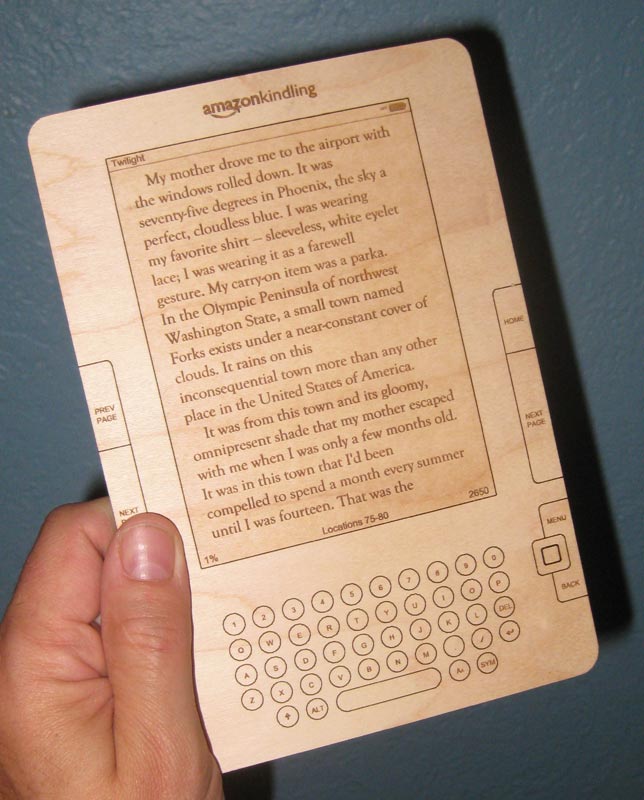 amazonkindling
Twilight
My mother drove me to the airport with
the windows rolled down. It was
seventy-five degrees in Phoenix, the sky a
perfect, cloudless blue. I was wearing
my favorite shirt – sleeveless, white eyelet
lace; I was wearing it as a farewell
gesture. My carry-on item was a parka.
In the Olympic Peninsula of northwest
Washington State, a small town named
Forks exists under a near-constant cover of
clouds. It rains on this
inconsequential town more than any other
place in the United States of America.
It was from this town and its gloomy,
omnipresent shade that my mother escaped
with me when I was only a few months old.
It was in this town that I'd been
compelled to spend a month every summer
until I was fourteen. That was the
1% Locations 75-80 2650
PREV
PAGE
NEXT
HOME
NEXT
PAGE
MENU
BACK
1 2 3 4 5 6 7 8 9 0
Q W E R T Y U I O P
A S D F G H J K L DEL
Z X C V B N M . / ↵
⬆ ALT Aa SYM